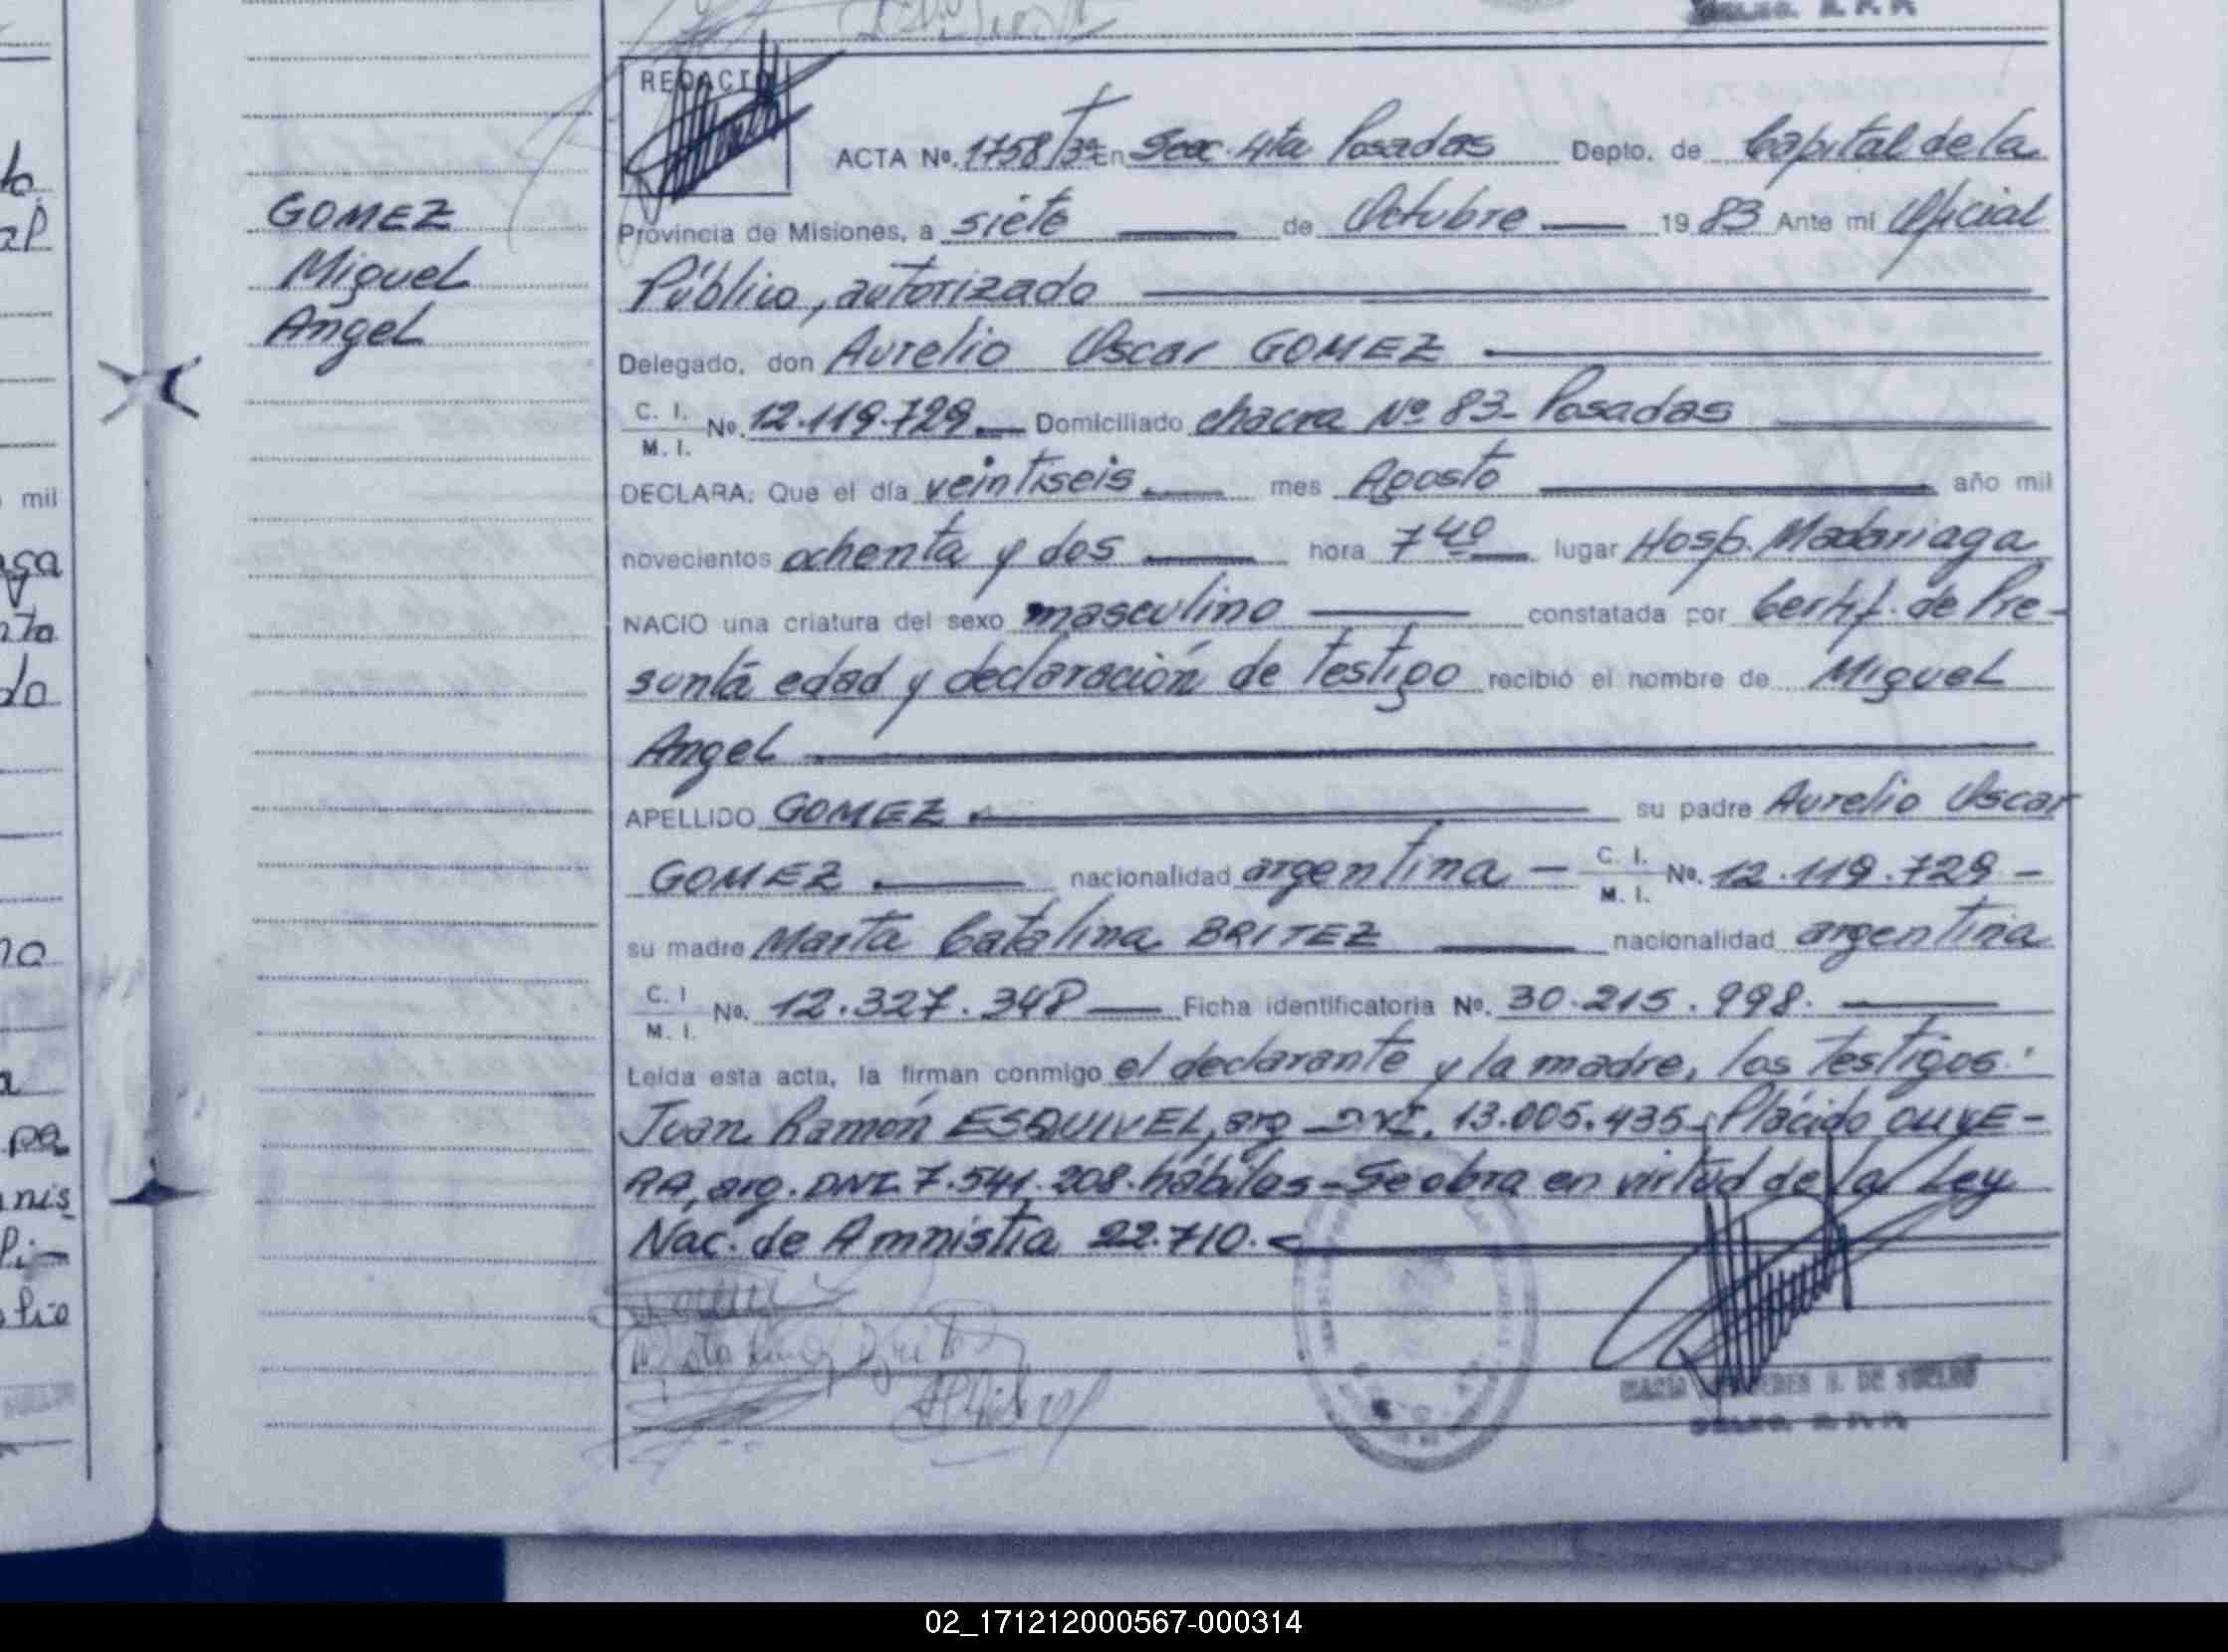 GOMEZ
Miguel
Angel
REDACTO
ACTA No. 1758/3º En Secc. 4ta Posadas Depto. de Capital de la
Provincia de Misiones, a siete de Octubre 1983 Ante mí Oficial
Público, autorizado
Delegado, don Aurelio Oscar GOMEZ
C. I.
M. I. No. 12.119.729. Domiciliado chacra Nº 83- Posadas
DECLARA: Que el día veintiseis mes Agosto año mil
novecientos ochenta y dos hora 7 40 lugar Hosp. Madariaga
NACIO una criatura del sexo masculino constatada por Certif. de Pre-
sunta edad y declaración de testigo recibió el nombre de Miguel
Angel
APELLIDO GOMEZ su padre Aurelio Oscar
GOMEZ nacionalidad argentina - C. I. M. I. No. 12.119.729 -
su madre Marta Catalina BRITEZ nacionalidad argentina
C. I M. I. No. 12.327.348 Ficha identificatoria No. 30.215.998.
Leída esta acta, la firman conmigo el declarante y la madre, los testigos:
Juan Ramón ESQUIVEL, arg. DNI. 13.005.435- Plácido OLIVE-
RA, arg. DNI. 7.541.208. hábiles - Se obra en virtud de la Ley
Nac. de Amnistia 22.710.
02_171212000567-000314